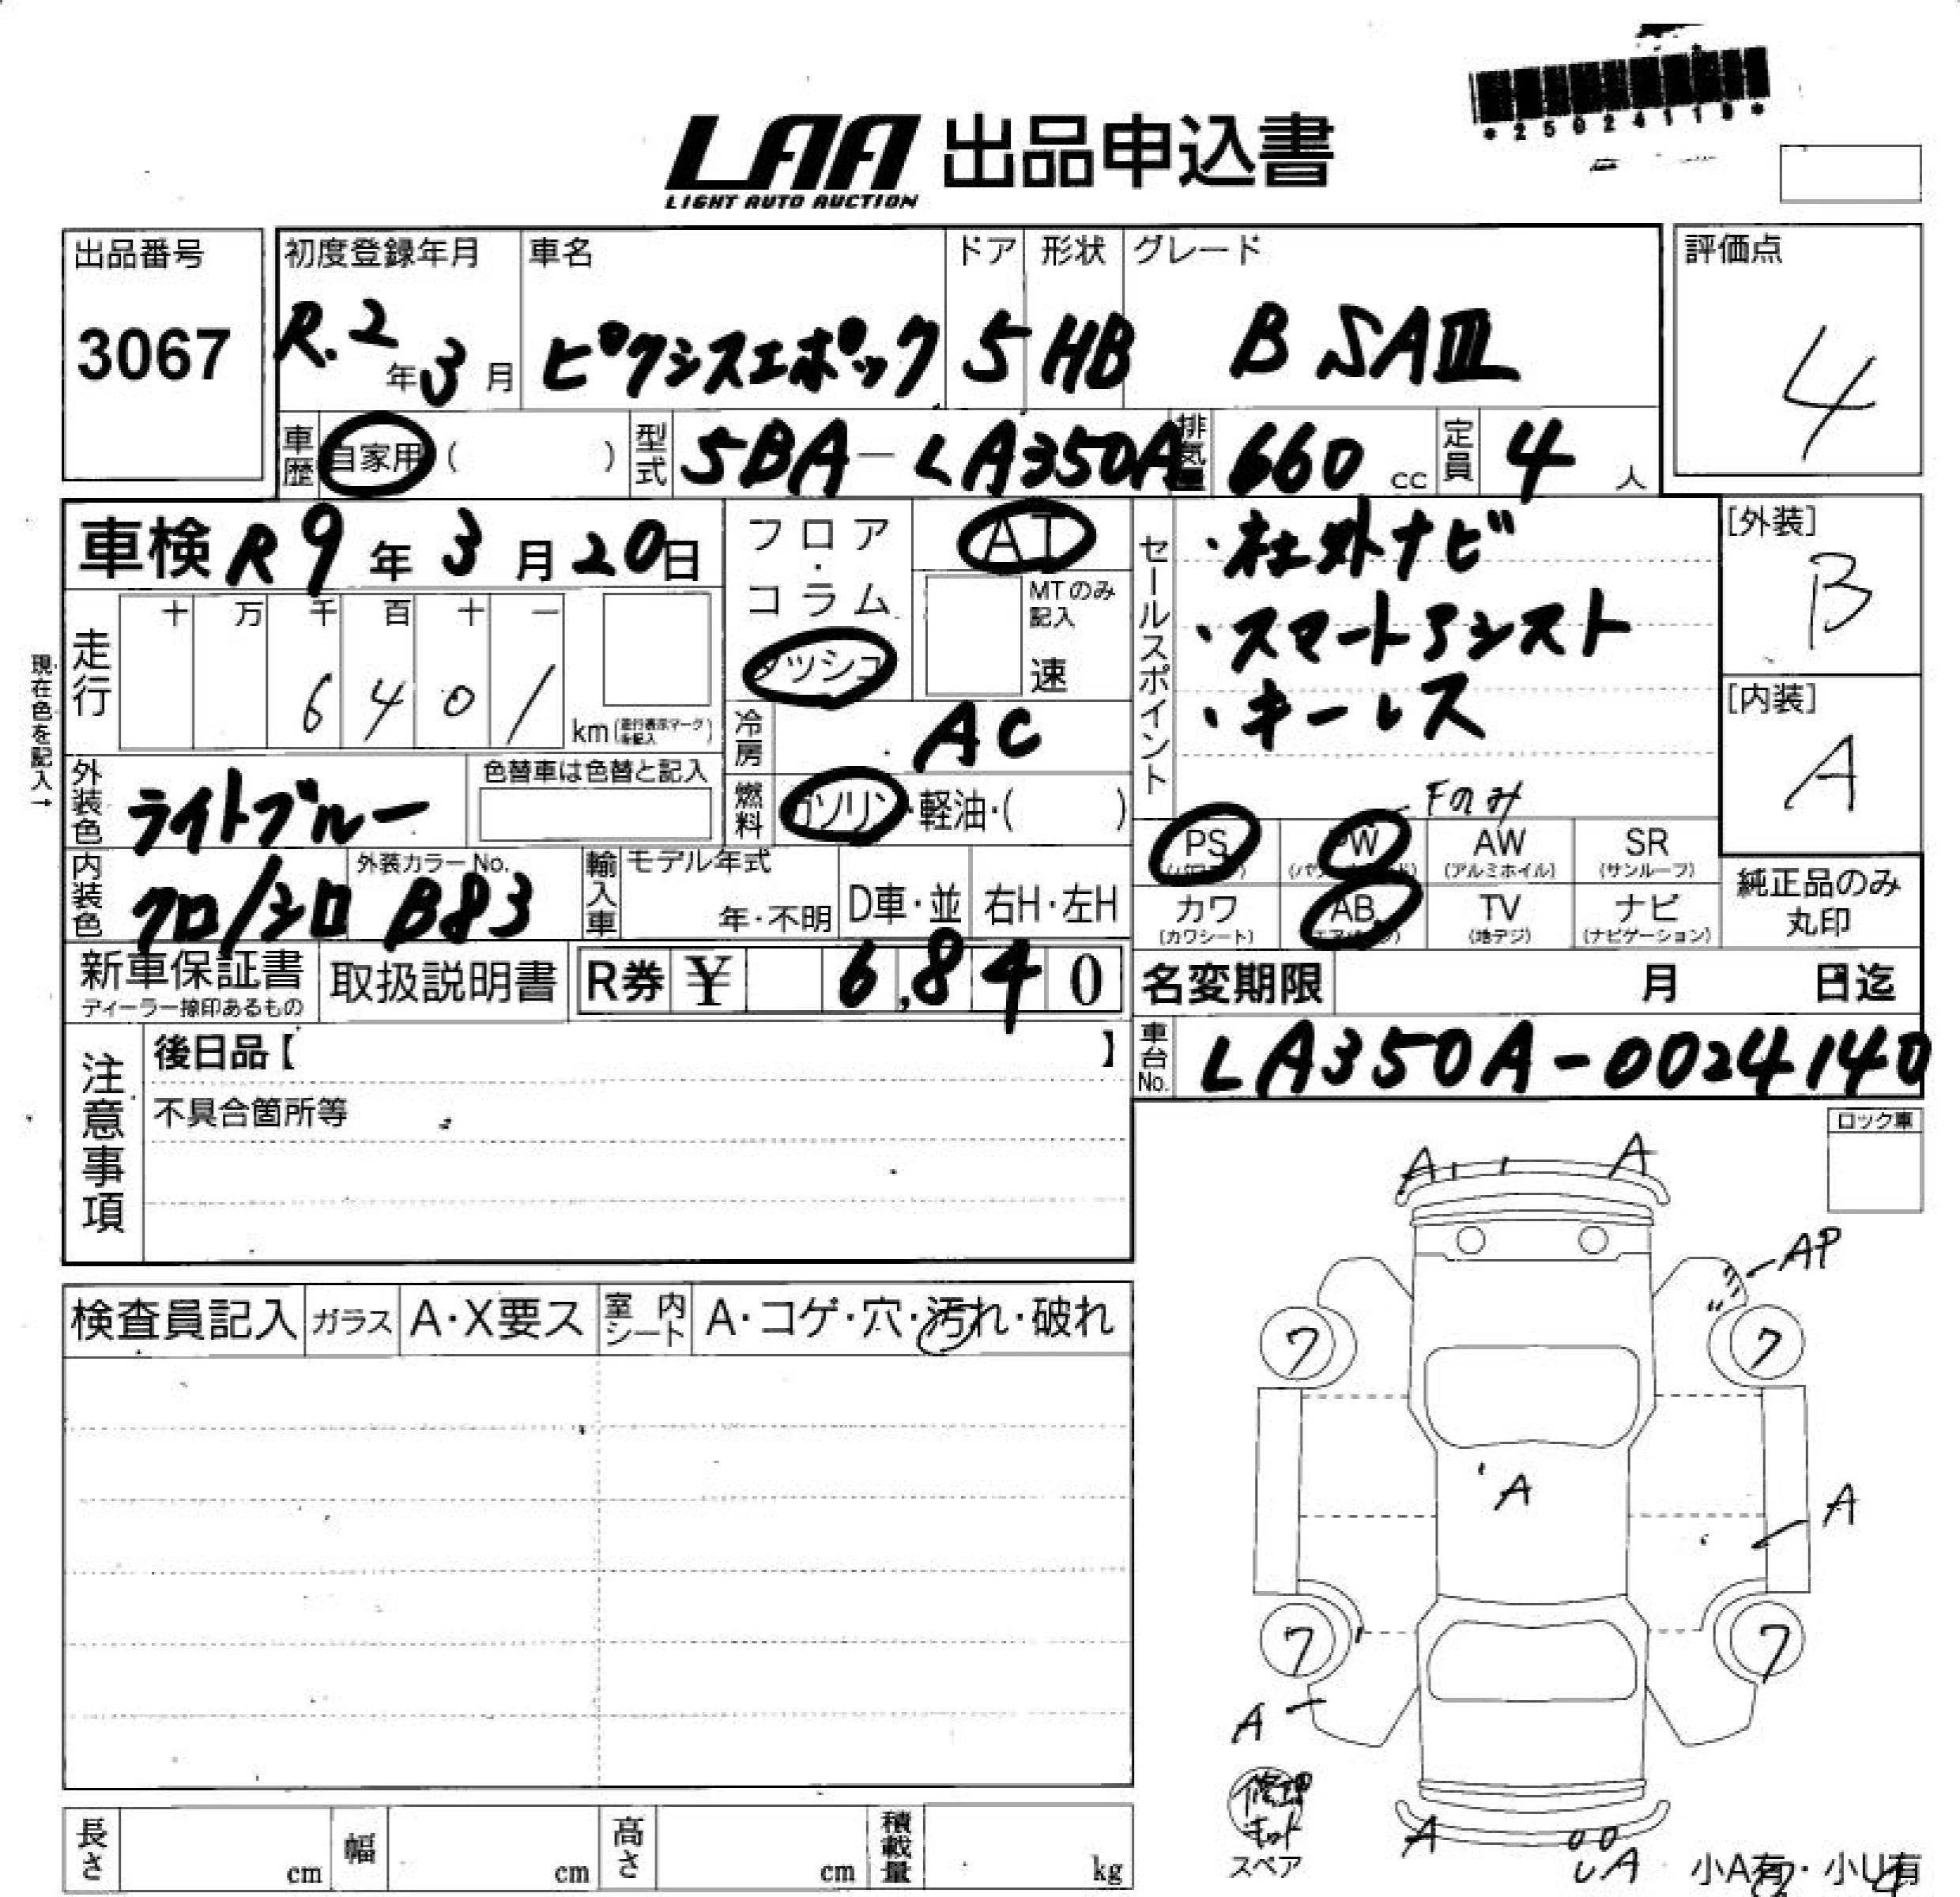 *25024119*
LAA 出品申込書
LIGHT AUTO AUCTION
出品番号
3067
初度登録年月
R.2年3月
車名
ピクシスエポック
ドア
5
形状
HB
グレード
B SAⅢ
評価点
4
車歴 自家用 ( )
型式 5BA-LA350A
排気量 660 cc
定員 4 人
車検 R9年3月20日
フロア・コラム
ダッシュ
AT
MTのみ記入
速
セールスポイント
・社外ナビ
・スマートアシスト
・キーレス
[外装]
B
[内装]
A
現在色を記入→
走行
十 万 千 百 十 一
6 4 0 1
km (走行表示マーク を記入)
冷房 AC
外装色 ライトブルー
色替車は色替と記入
燃料 ガソリン・軽油・( )
Fのみ
PS PW AW (アルミホイル) SR (サンルーフ)
カワ (カワシート) AB TV (地デジ) ナビ (ナビゲーション)
純正品のみ
丸印
内装色 クロ/シロ
外装カラーNo.
B83
輸入車 モデル年式
年・不明
D車・並
右H・左H
新車保証書
ディーラー捺印あるもの
取扱説明書
R券 ¥ 6,840
名変期限 月 日迄
車台No. LA350A-0024140
注意事項
後日品【 】
不具合箇所等
ロック車
検査員記入 ガラス A・X要ス 室内シート A・コゲ・穴・汚れ・破れ
A A
AP
7 7
A
A
7 7
A
修理
キット
スペア
A
UA
小A有・小U有
長さ cm 幅 cm 高さ cm 積載量 kg